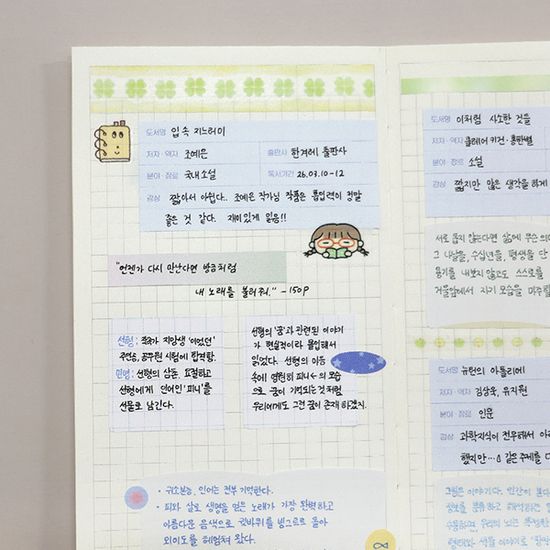 도서명 입 속 지느러미
저자·역자 조예은 출판사 한겨레 출판사
분야·장르 국내소설 독서기간 26.03.10-12
감상 짧아서 아쉽다. 조예은 작가님 작품은 몰입력이 정말
좋은 것 같다. 재미있게 읽음!!
"언젠가 다시 만난다면 방금처럼
내 노래를 불러줘." -150P
선형: 작곡가 지망생 '이었던'
주인공, 공무원 시험에 합격함.
민영: 선형의 삼촌,
선형에게 인어인 '피니'를
선물로 남긴다.
선형의 '꿈'과 관련된 이야기
가 현실적이라 몰입해서
읽었다. 선형의 마음
속에 영원히 피니의 모습
으로 꿈이 기억되는 것처럼
우리에게도 그런 꿈이 존재하겠지.
• 귀소본능, 인어는 전부 기억한다.
• 피와 살로 생명을 얻은 노래가 가장 완벽하고
아름다운 음색으로 귓바퀴를 빙그르르 돌아
외이도를 헤엄쳐 왔다.
도서명 이처럼 사소한 것들
저자·역자 클레어 키건·홍한별
분야·장르 소설
감상 짧지만 많은 생각을 하게
서로 돕지 않는다면 삶에 무슨 의
그 나날을, 수십년을, 평생을 단
용기를 내보지 않고도 스스로를
거울앞에서 자기 모습을 마주할
도서명 뉴턴의 아틀리에
저자·역자 김상욱, 유지원
분야·장르 인문
감상 과학지식이 전무해서 어려
했지만… 같은 주제를 다
그림은 이야기다. 인간이 본다